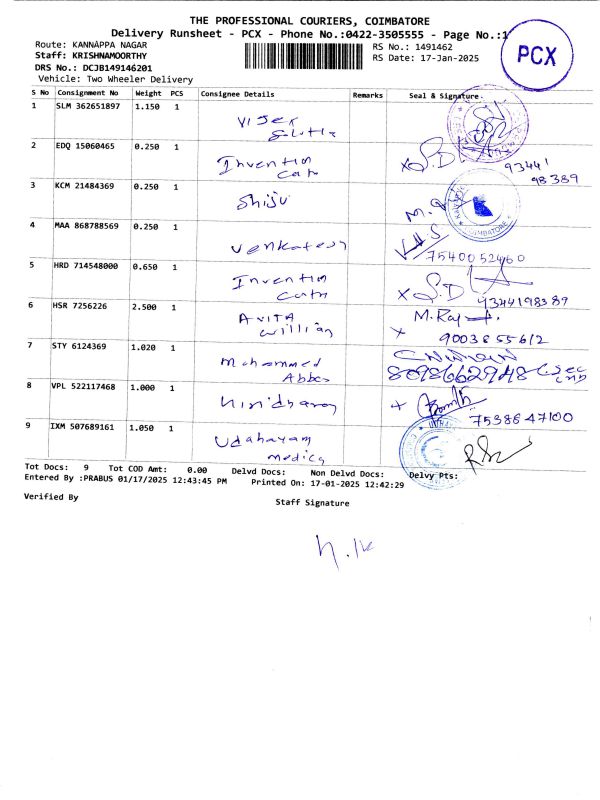 THE PROFESSIONAL COURIERS, COIMBATORE
Delivery Runsheet - PCX - Phone No.:0422-3505555 - Page No.:1
PCX
Route: KANNAPPA NAGAR
RS No.: 1491462
Staff: KRISHNAMOORTHY
RS Date: 17-Jan-2025
DRS No.: DCJB149146201
Vehicle: Two Wheeler Delivery
S No Consignment No Weight PCS Consignee Details Remarks Seal & Signature
1 SLM 362651897 1.150 1
2 EDQ 15060465 0.250 1 Invention 93441
98389
3 KCM 21484369 0.250 1 Shiju
COIMBATORE
4 MAA 868788569 0.250 1 Venkatesh 7540052460
5 HRD 714548000 0.650 1 Invention S.D
9344198389
6 HSR 7256226 2.500 1 Avita M. Raj
William 9003855612
7 STY 6124369 1.020 1 Mohammed
Abbas 8098662948
8 VPL 522117468 1.000 1 7538647100
9 IXM 507689161 1.050 1 Udahayam
medica
Tot Docs: 9 Tot COD Amt: 0.00 Delvd Docs: Non Delvd Docs: Delvy Pts:
Entered By :PRABUS 01/17/2025 12:43:45 PM Printed On: 17-01-2025 12:42:29
Verified By
Staff Signature